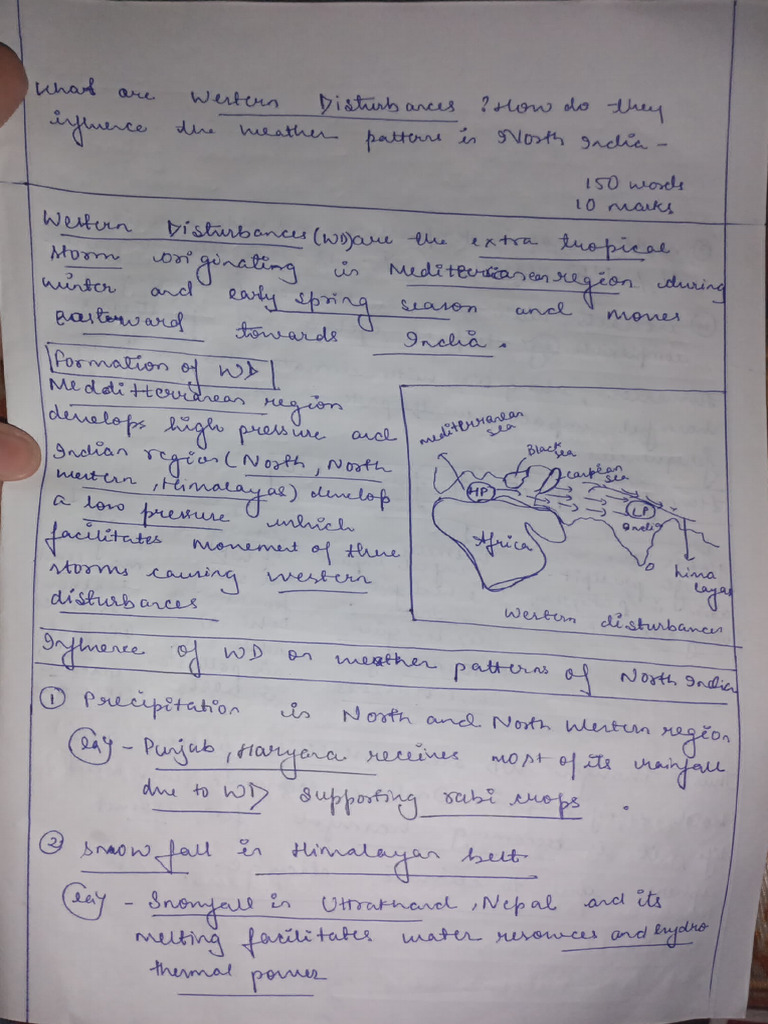 What are Western Disturbances ? How do they
influence the weather pattern in North India -
150 words
10 marks
Western Disturbances (WD) are the extra tropical
storm originating in Mediterranean region during
winter and early spring season and moves
eastward towards India.
Formation of WD
Medditterranean region
develops high pressure and
Indian region (North, North
western, Himalayas) develop
a low pressure which
facilitates movement of these
storms causing western
disturbances
Mediterranean
sea
Black
sea
HP
LP
India
Africa
hima
layas
Western disturbances
Influence of WD on weather patterns of North India
① Precipitation in North and North Western region
- Punjab, Haryana receives most of its rainfall
due to WD supporting rabi crops.
② Snow fall in Himalayan belt
- Snowfall in Uttrakhand, Nepal and its
melting facilitates water resources and hydro
thermal power